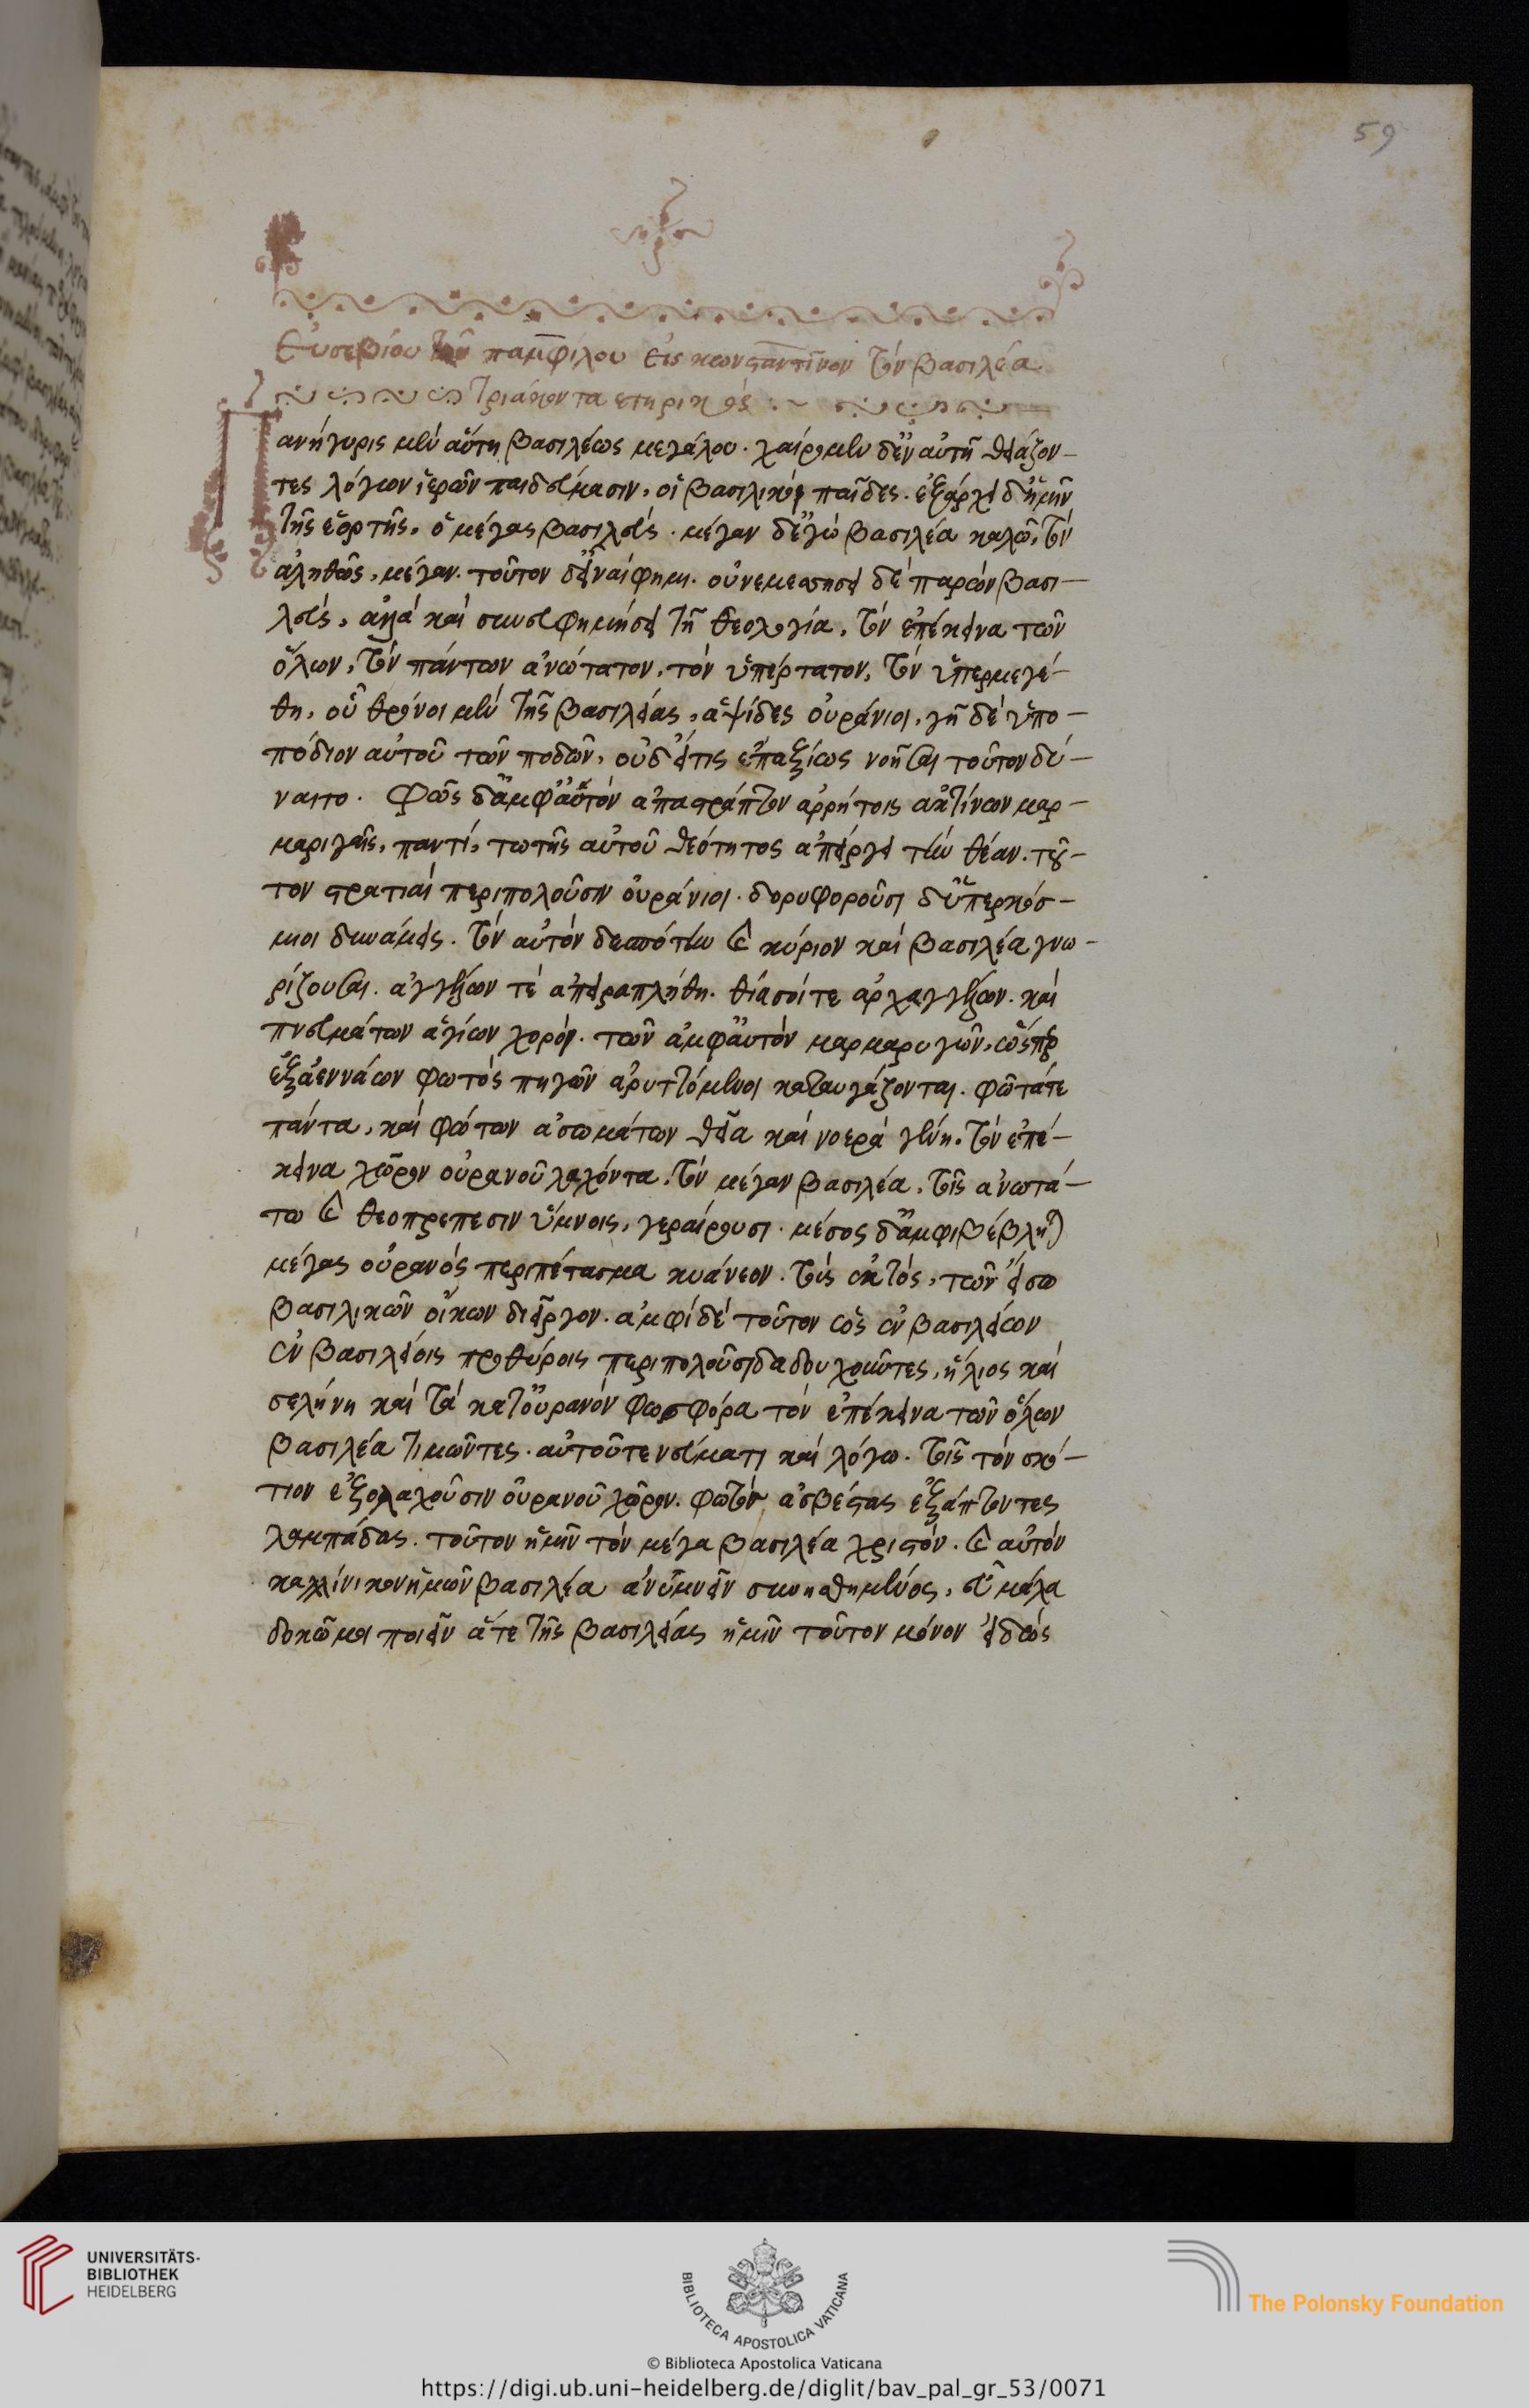 59
Εὐσεβίου τοῦ παμφίλου εἰς κωνσταντῖνον τὸν βασιλέα
τριακονταετηρικός
Πανήγυρις μὲν αὕτη βασιλέως μεγάλου. χαίρομεν δ' ἐν αὐτῇ θειάζον-
τες λόγων ἱερῶν παιδεύμασιν, οἱ βασιλικοὶ παῖδες. ἐξάρχει δ' ἡμῖν
τῆς ἑορτῆς, ὁ μέγας βασιλεύς. μέγαν δ' ἐγὼ βασιλέα καλῶ, τὸν
ἀληθῶς, μέγαν. τοῦτον δ' εἶναί φημι. οὐ νεμεσήσει δὲ παρὼν βασι-
λεύς, ἀλλὰ καὶ συνευφημήσει τῇ θεολογία, τὸν ἐπέκεινα τῶν
ὅλων, τὸν πάντων ἀνώτατον, τὸν ὑπέρτατον, τὸν ὑπερμεγέ-
θη, οὗ θρόνοι μὲν τῆς βασιλείας, ἁψίδες οὐράνιοι, γῆ δὲ ὑπο-
πόδιον αὐτοῦ τῶν ποδῶν, οὐδ' εἴ τις ἐπαξίως νοῆσαι τοῦτον δύ-
ναιτο. φῶς δ' ἀμφ' αὐτὸν ἀπαστράπτον ἀρρήτοις ἀκτίνων μαρ-
μαριγαῖς, παντί, τω τῆς αὐτοῦ θεότητος ἀπείργει τὴν θέαν. τοῦ-
τον στρατιαὶ περιπολοῦσιν οὐράνιοι. δορυφοροῦσι δ' ὑπερκόσ-
μιοι δυνάμεις. τὸν αὐτὸν δεσπότην καὶ κύριον καὶ βασιλέα γνω-
ρίζουσαι. ἀγγέλων τὲ ἀπειραπλήθη. θίασοί τε ἀρχαγγέλων. καὶ
πνευμάτων ἁγίων χοροί. τῶν ἀμφ' αὐτὸν μαρμαρυγῶν, ὥσπερ
ἐξ ἀεννάων φωτὸς πηγῶν ἀρυττόμενοι καταυγάζονται. φῶτά τε
πάντα, καὶ φώτων ἀσωμάτων θεῖα καὶ νοερὰ γένη. τὸν ἐπέ-
κεινα χῶρον οὐρανοῦ λαχόντα. τὸν μέγαν βασιλέα, τοῖς ἀνωτά-
τω καὶ θεοπρεπεσιν ὕμνοις, γεραίρουσι. μέσος δ' ἀμφιβέβληται
μέγας οὐρανὸς περιπέτασμα κυάνεον. τοὺς ἐκτός, τῶν εἴσω
βασιλικῶν οἴκων διεῖργον. ἀμφὶ δὲ τοῦτον ὡς ἐν βασιλείων
ἐν βασιλείοις προθύροις περιπολοῦσι δαδουχοῦντες, ἥλιος καὶ
σελήνη καὶ τὰ κατ' οὐρανὸν φωσφόρα τὸν ἐπέκεινα τῶν ὅλων
βασιλέα τιμῶντες. αὐτοῦ τε νεύματι καὶ λόγω. τοῖς τὸν σκό-
τιον ἐξολαχοῦσιν οὐρανοῦ χῶρον. φωτὸν ἀσβέστας ἐξάπτοντες
λαμπάδας. τοῦτον ἡμῖν τὸν μέγα βασιλέα χριστόν. καὶ αὐτὸν
καλλίνικον ἡμῶν βασιλέα ἀνυμνεῖν συνησθημένος, εὖ μάλα
δοκῶ μοι ποιεῖν ἅτε τῆς βασιλείας ἡμῖν τοῦτον μόνον εἰδὼς
UNIVERSITÄTS-
BIBLIOTHEK
HEIDELBERG
BIBLIOTECA APOSTOLICA VATICANA
The Polonsky Foundation
© Biblioteca Apostolica Vaticana
https://digi.ub.uni-heidelberg.de/diglit/bav_pal_gr_53/0071